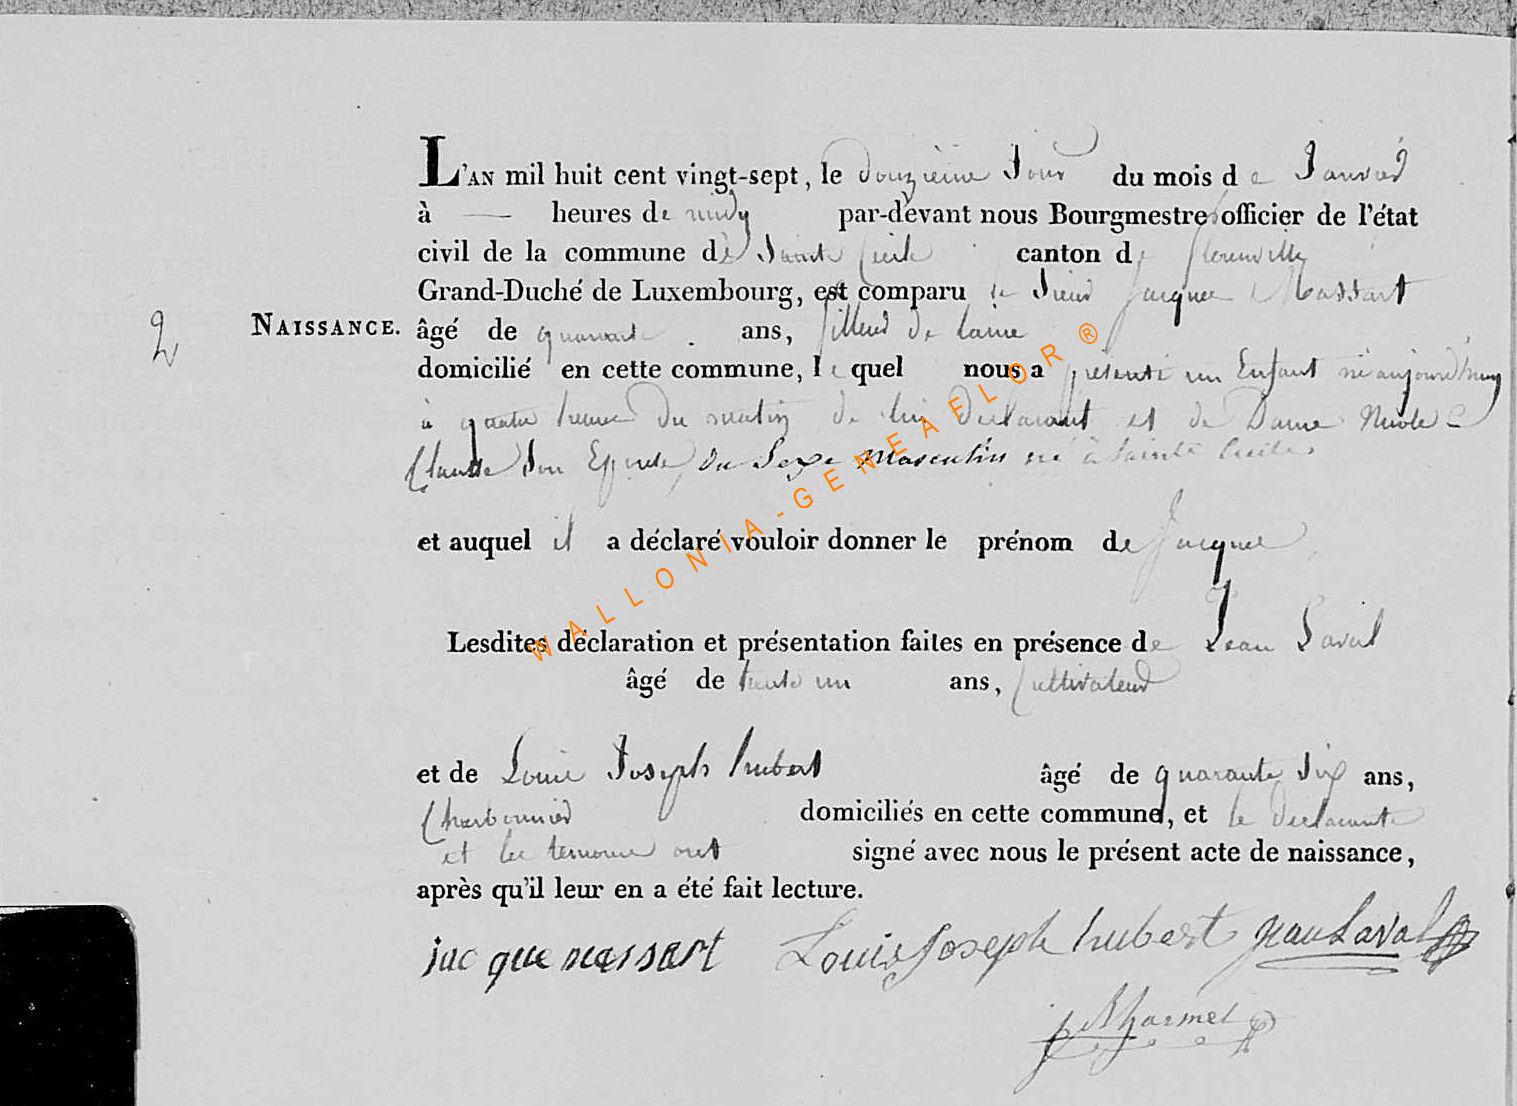 L'AN mil huit cent vingt-sept, le douzième Jour du mois de Janvier
à — heures de midy par-devant nous Bourgmestre officier de l'état
civil de la commune de Sainte Cecile canton de florenville
Grand-Duché de Luxembourg, est comparu le Sieur Jacque Massart
2 NAISSANCE. âgé de quarante ans, filleur de laine
domicilié en cette commune, le quel nous a présenté un Enfant né aujourd'huy
à quatre heures du matin de lui déclarant et de Dame Nicole
Claude Son Epouse, du Sexe Masculin né à Sainte Cecile.
et auquel il a déclaré vouloir donner le prénom de Jacque
Lesdites déclaration et présentation faites en présence de Jean Laval
âgé de trente un ans, Cultivateur
et de Louis Joseph hubert âgé de quarante Six ans,
Charbonnier domiciliés en cette commune, et le declarant
et les temoins ont signé avec nous le présent acte de naissance,
après qu'il leur en a été fait lecture.
jacque massart Louis Joseph hubert Jean Laval
WALLONIA-GENEAELOR ®